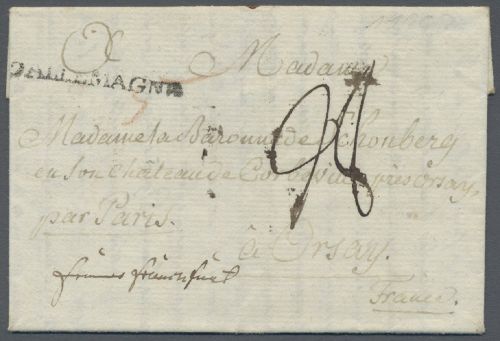 Madame
D'ALLEMAGNE
24
Madame la Baronne de Schonberg
en son Château de Corbeville près Orsay,
par Paris.
à Orsay.
France.